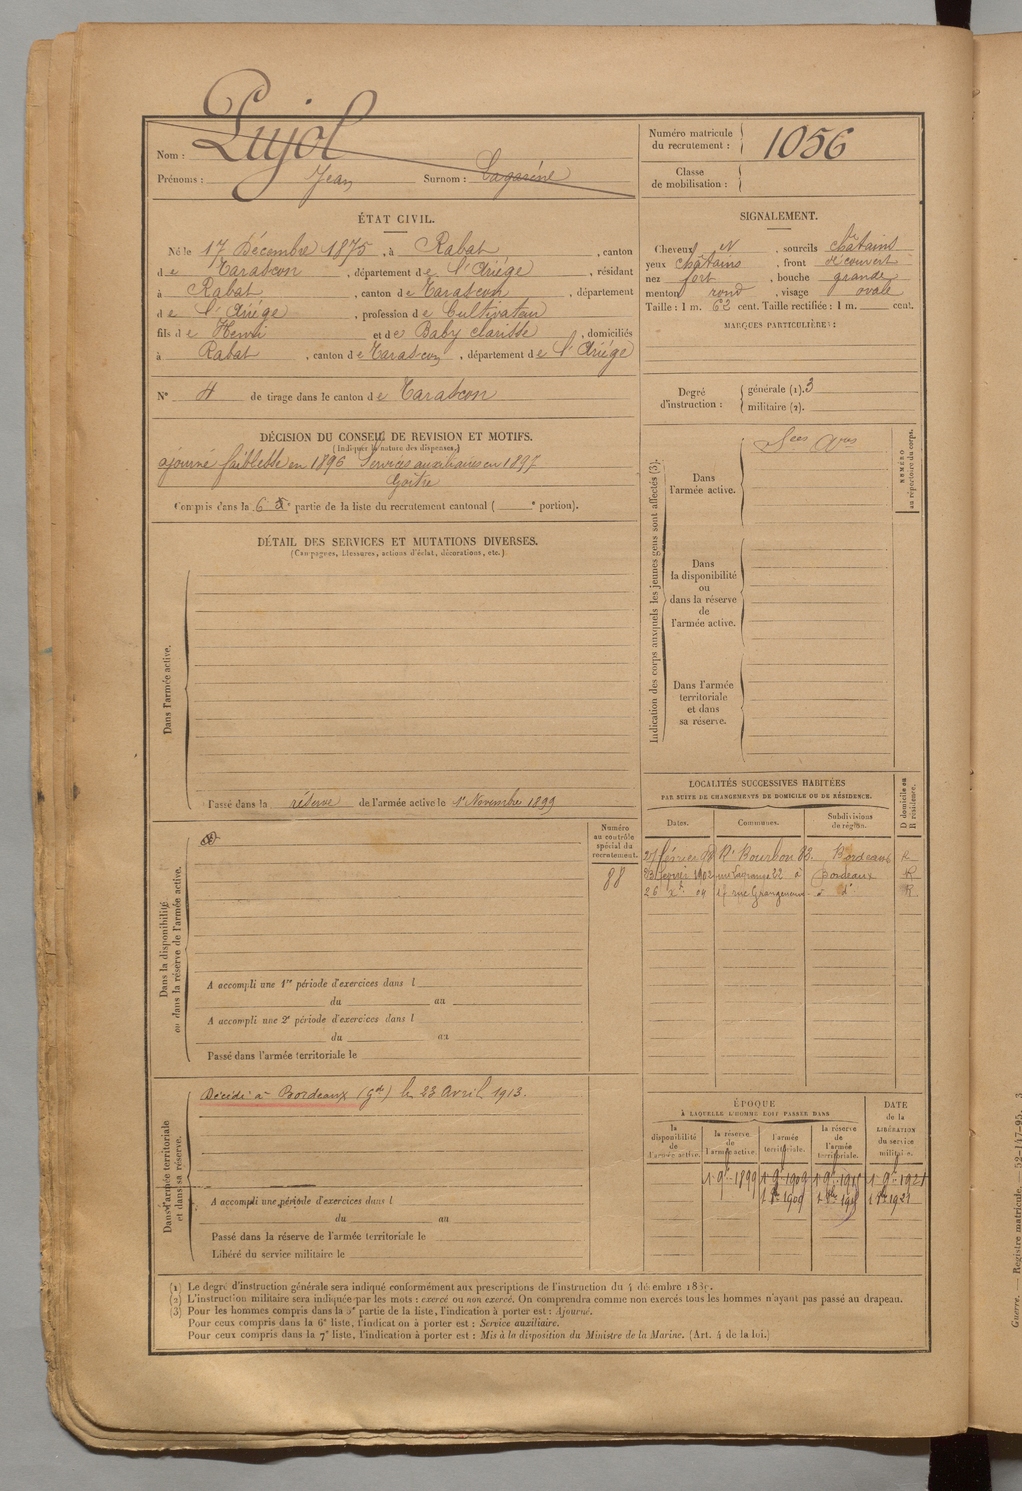 Nom : Pujol
Prénoms : Jean Surnom : Lagarène
Numéro matricule du recrutement : 1056
Classe de mobilisation :
ÉTAT CIVIL.
Né le 17 Décembre 1875, à Rabat, canton
de Tarascon, département de l'Ariége, résidant
à Rabat, canton de Tarascon, département
de l'Ariége, profession de Cultivateur
fils de Henri et de Baby clarisse, domiciliés
à Rabat, canton de Tarascon, département de l'Ariége
N° 4 de tirage dans le canton de Tarascon
SIGNALEMENT.
Cheveux et, sourcils châtains
yeux châtains, front découvert
nez fort, bouche grande
menton rond, visage ovale
Taille : 1 m. 62 cent. Taille rectifiée : 1 m. cent.
MARQUES PARTICULIÈRES :
Degré d'instruction : générale (1). 3
militaire (2).
DÉCISION DU CONSEIL DE REVISION ET MOTIFS.
(Indiquer la nature des dispenses.)
ajourné faiblesse en 1896 Services auxiliaires en 1897
Goître
Compris dans la 6e partie de la liste du recrutement cantonal ( e portion).
DÉTAIL DES SERVICES ET MUTATIONS DIVERSES.
(Campagnes, blessures, actions d'éclat, décorations, etc.)
Dans l'armée active.
Passé dans la réserve de l'armée active le 1er Novembre 1899
Indication des corps auxquels les jeunes gens sont affectés (3).
Dans l'armée active.
NUMÉRO au répertoire du corps.
Dans la disponibilité ou dans la réserve de l'armée active.
Dans l'armée territoriale et dans sa réserve.
LOCALITÉS SUCCESSIVES HABITÉES
PAR SUITE DE CHANGEMENTS DE DOMICILE OU DE RÉSIDENCE.
Dates. Communes. Subdivisions de région. D domicile ou R résidence.
Bourbon 83. Bordeaux R
1902 rue Lagrange 22 à Bordeaux R
26 04 17 rue d° R
Dans la disponibilité ou dans la réserve de l'armée active.
Numéro au contrôle spécial du recrutement.
88
A accompli une 1re période d'exercices dans l
du au
A accompli une 2e période d'exercices dans l
du au
Passé dans l'armée territoriale le
Dans l'armée territoriale et dans sa réserve.
Décédé à Bordeaux (Gde) le 23 Avril 1913.
A accompli une période d'exercices dans l
du au
Passé dans la réserve de l'armée territoriale le
Libéré du service militaire le
ÉPOQUE
À LAQUELLE L'HOMME DOIT PASSER DANS
DATE de la LIBÉRATION du service militaire.
la disponibilité de l'armée active. la réserve de l'armée active. l'armée territoriale. la réserve de l'armée territoriale.
1er 9bre 1899 1er 9bre 1909 1er 9bre 1915 1er 9bre 1921
(1) Le degré d'instruction générale sera indiqué conformément aux prescriptions de l'instruction du 4 décembre 1889.
(2) L'instruction militaire sera indiquée par les mots : exercé ou non exercé. On comprendra comme non exercés tous les hommes n'ayant pas passé au drapeau.
(3) Pour les hommes compris dans la 5e partie de la liste, l'indication à porter est : Ajourné.
Pour ceux compris dans la 6e liste, l'indication à porter est : Service auxiliaire.
Pour ceux compris dans la 7e liste, l'indication à porter est : Mis à la disposition du Ministre de la Marine. (Art. 4 de la loi.)
Guerre. — Registre matricule. — 52-147-95. 3